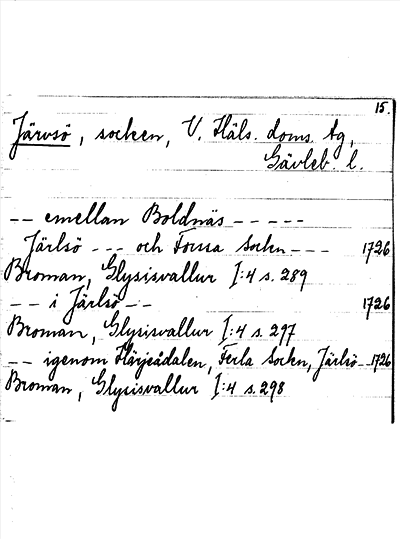 15.
Järvsö, socken, V. Häls. doms. tg,
Gävleb. l.
-- emellan Boldnäs -----
Järlsö --- och Forssa Sockn --- 1726
Broman, Glysisvallur I:4 s. 289
-- i Järlsö -- 1726
Broman, Glysisvallur I:4 s. 297
-- igenom Härjeådalen, Ferla Sockn, Järlsö -- 1726
Broman, Glysisvallur I:4 s. 298